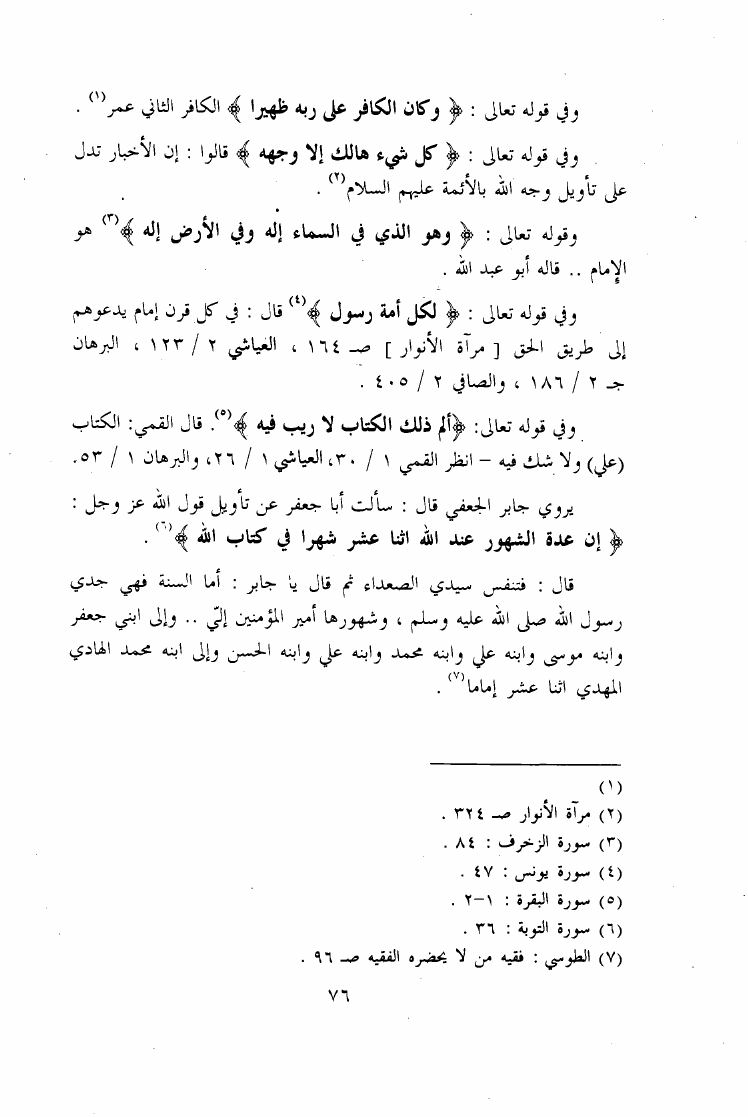 وفي قوله تعالى : ﴿ وكان الكافر على ربه ظهيرا ﴾ الكافر الثاني عمر(١) .
وفي قوله تعالى : ﴿ كل شيء هالك إلا وجهه ﴾ قالوا : إن الأخبار تدل
على تأويل وجه الله بالأئمة عليهم السلام(٢) .
وقوله تعالى : ﴿ وهو الذي في السماء إله وفي الأرض إله ﴾(٣) هو
الإمام .. قاله أبو عبد الله .
وفي قوله تعالى : ﴿ لكل أمة رسول ﴾(٤) قال : في كل قرن إمام يدعوهم
إلى طريق الحق [ مرآة الأنوار ] صـ ١٦٤ ، العياشي ٢ / ١٢٣ ، البرهان
جـ ٢ / ١٨٦ ، والصافي ٢ / ٤٠٥ .
وفي قوله تعالى: ﴿ألم ذلك الكتاب لا ريب فيه ﴾(٥). قال القمي: الكتاب
(علي) ولا شك فيه – انظر القمي ١ / ٣٠، العياشي ١ / ٢٦، والبرهان ١ / ٥٣.
يروي جابر الجعفي قال : سألت أبا جعفر عن تأويل قول الله عز وجل :
﴿ إن عدة الشهور عند الله اثنا عشر شهرا في كتاب الله ﴾(٦) .
قال : فتنفس سيدي الصعداء ثم قال يا جابر : أما السنة فهي جدي
رسول الله صلى الله عليه وسلم ، وشهورها أمير المؤمنين إليّ .. وإلى ابني جعفر
وابنه موسى وابنه علي وابنه محمد وابنه علي وابنه الحسن وإلى ابنه محمد الهادي
المهدي اثنا عشر إماما(٧) .
(١)
(٢) مرآة الأنوار صـ ٣٢٤ .
(٣) سورة الزخرف : ٨٤ .
(٤) سورة يونس : ٤٧ .
(٥) سورة البقرة : ١–٢ .
(٦) سورة التوبة : ٣٦ .
(٧) الطوسي : فقيه من لا يحضره الفقيه صـ ٩٦ .
٧٦